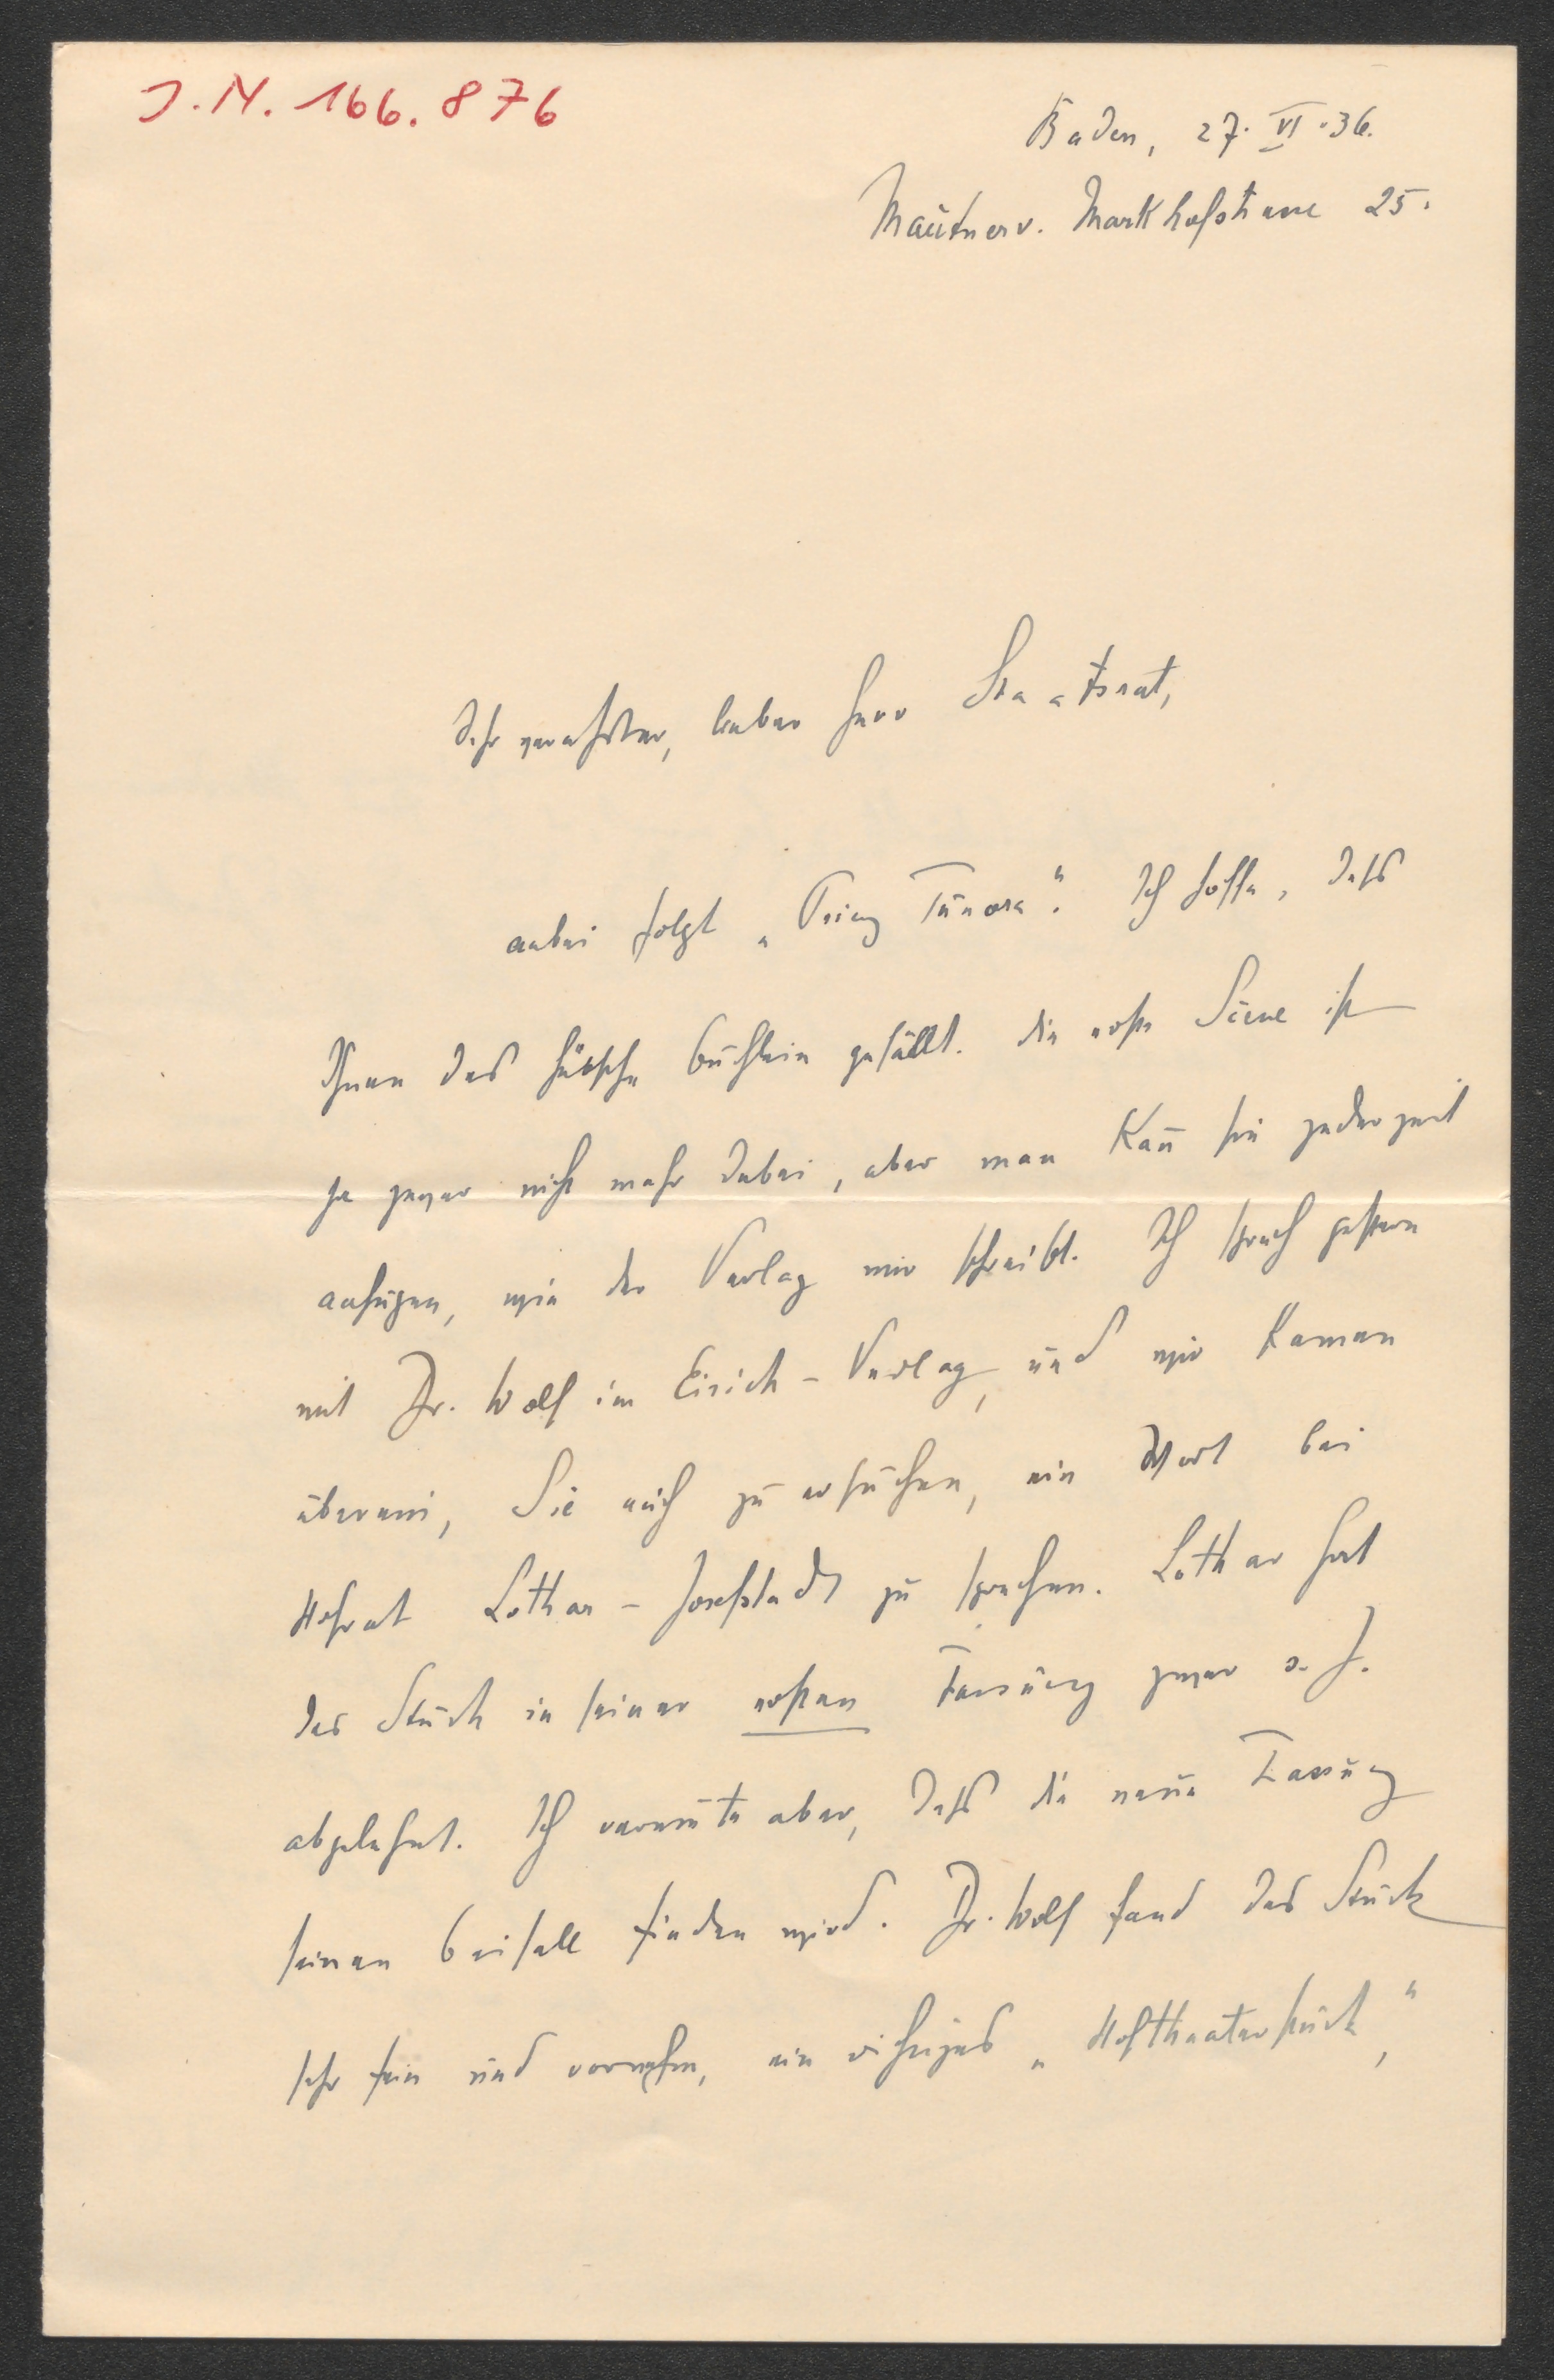 J. N. 166.876
Baden, 27. VI. 36.
Mautner v. Markhofstrasse 25.
Sehr verehrter, lieber Herr Staatsrat,
anbei folgt „Prinz Tunora“. Ich hoffe, dass
Ihnen das hübsche Büchlein gefällt. Die erste Scene ist
ja zwar nicht mehr dabei, aber man kann sie jederzeit
anfügen, wie der Verlag mir schreibt. Ich sprach gestern
mit Dr. Wolf im Eirich-Verlag, und wir kamen
überein, Sie auch zu ersuchen, ein Wort bei
Hofrat Lothar - Josefstadt zu sprechen. Lothar hat
das Stück in seiner ersten Fassung zwar s. Z.
abgelehnt. Ich vermute aber, dass die neue Fassung
seinen Beifall finden wird. Dr. Wolf fand das Stück
sehr fein und vornehm, ein richtiges „Hoftheaterstück“,